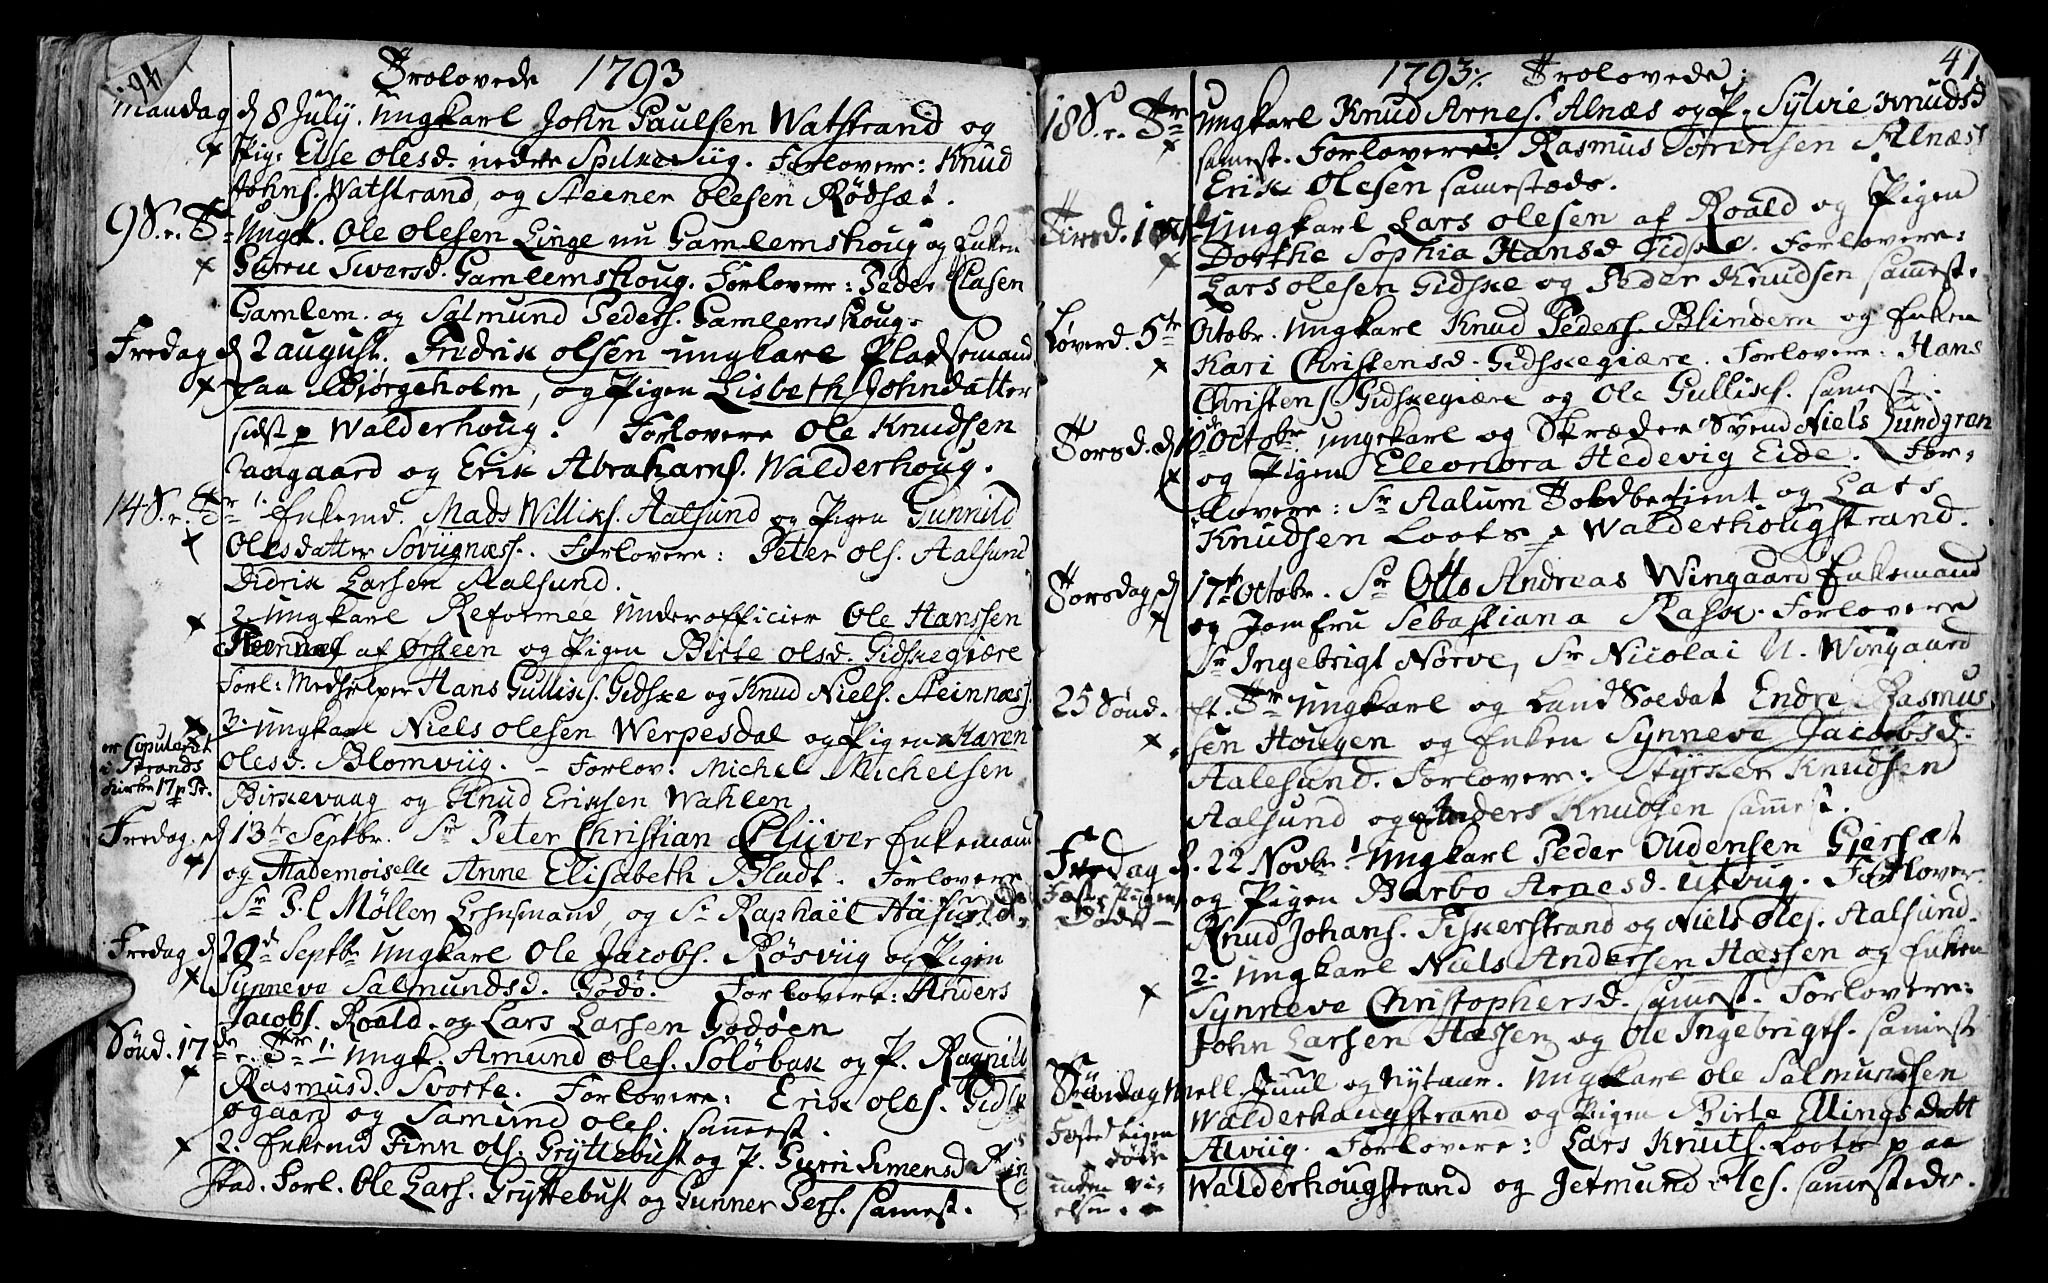 94.
Trolovede 1793
Mandag d 8 July. Ungkarl John Paulsen Watstrand og
Pig: Else Olesd. nedre Spilkeviig. Forlovere: Knud
Johns. Watstrand, og Steener Olesen Rödsæt.
9 S. e. T. Ungk. Ole Olesen Linge nu Gamlemshoug og Enken
Gurru Siversd. Gamlemshoug. Forlovere: Peder Clasen
Gamlem. og Salmund Peders. Gamlemshoug.
Fredag d 2 august. Fridrik Olsen ungkarl Pladsemand
paa Biörgeholm, og Pigen Lisbeth Johndatter
sidst p Walderhoug. Forlovere Ole Knudsen
Aaagaard og Erik Abrahams. Walderhoug.
14 S. e. Tr 1. Enkemd. Mads Williks. Aalsund og Pigen Gunnild
Olesdatter Soviignæss. Forlovere: Peter Ols. Aalsund
Didrik Larsen Aalsund.
2. Ungkarl Reformee Underofficier Ole Hanssen
Steinnæs af Ørsteen og Pigen Birte Olsd. Gidskegiære
Forl: Medhielper Hans Gulliks. Gidske og Knud Niels. Steinnæss.
3. Ungkarl Niels Olesen Werpesdal og Pigen Karen
Olesd. Blomviig. - Forlov: Michel Michelsen
Birkevaag og Knud Eriksen Wahlen
er Copuleret
i Strands
Kirke 17 p Tr.
Fredag. d 13de Septbr. Sr Peter Christian Clüver Enkemand
og Mademoiselle Anne Elisabeth Bludt. Forlovere
Sr P. C Möller Lehnsmand, og Sr Raphaël Häsund.
Fredag d 20d Septbr Ungkarl Ole Jacobs. Rösviig og Pigen
Synneve Salmundsd. Godö. Forlovere: Anders
Jacobs. Roald. og Lars Larsen Godöen
Sönd. 17de e. Tr 1. Ungk. Amund Oles. Solöbak og P. Ragnild
Rasmusd. Svorte. Forlovere: Erik Oles. Gidsk
øgaard og Samund Oles. samest.
2. Enkemd Finn Ols. Gryttebust og P. Gurri Simensd
stad. Forl. Ole Lars. Gryttebust og Gunner Pers. samest.
41.
1793. Trolovede:
18 S. e. Tr Ungkarl Knud Arnes. Alnæs og P. Sylvie Knudsd
samest. Forlovere: Rasmus Sörensen Alnæss
Erik Olesen samestæds.
Tirsd. Ungkarl Lars Olesen af Roald og Pigen
Dorthe Sophia Hansd Gidske. Forlovere:
Lars Olesen Gidske og Peder Knudsen samest.
Löverd. 5te Octobr. Ungkarl Knud Peders. Blindem og Enken
Kari Christensd. Gidskegiære. Forlovere: Hans
Christens. Gidskegiære og Ole Gulliks. samest.
Torsd. d 10de Octobr Ungekarl og Skræder Svend Niels Lundgren
og Pigen Eleonora Hedevig Eide. For-
lovere: Sr Aalum Toldbetient og Lars
Knudsen Loots p Walderhougstrand.
Torsdag d 17de Octobr. Sr Otto Andreas Wingaard Enkemand
og Jomfru Sebastiana Rask. Forlovere
Sr Ingebrigt Nörve, Sr Nicolai U. Wingaard
25 Sönd. ef. Tr Ungkarl og Land Soldat Endre Rasmus
sen Hougen og Enken Synneve Jacobsd.
Aalesund. Forlovere: Styrker Knudsen
Aalsund og Anders Knudsen samest.
Fredag d. 22 Novbr 1 Ungkarl Peder Oudensen Gjersæt
og Pigen Barbo Arnesd. Utvug. Forlover.
Knud Johans. Fiskerstrand og Niels Oles. Aalsund.
Fæstepigen
Döde -
2. Ungkarl Niels Andersen Hæssen og Enken
Synneve Christophersd. samest. Forlovere:
John Larsen Hæssen og Ole Ingebrigts. samest
Söndag mell. Juul og Nytaar. Ungkarl Ole Salmundsen
Walderhaugstrand og Pigen Birte Ellingsdatt
Alviig. Forlovere: Lars Knuts. Loots p aa
Walderhougstrand og Jetmund Oles. samesteds.
Fæsted Pigen
döde
inden Vi-
elsen.